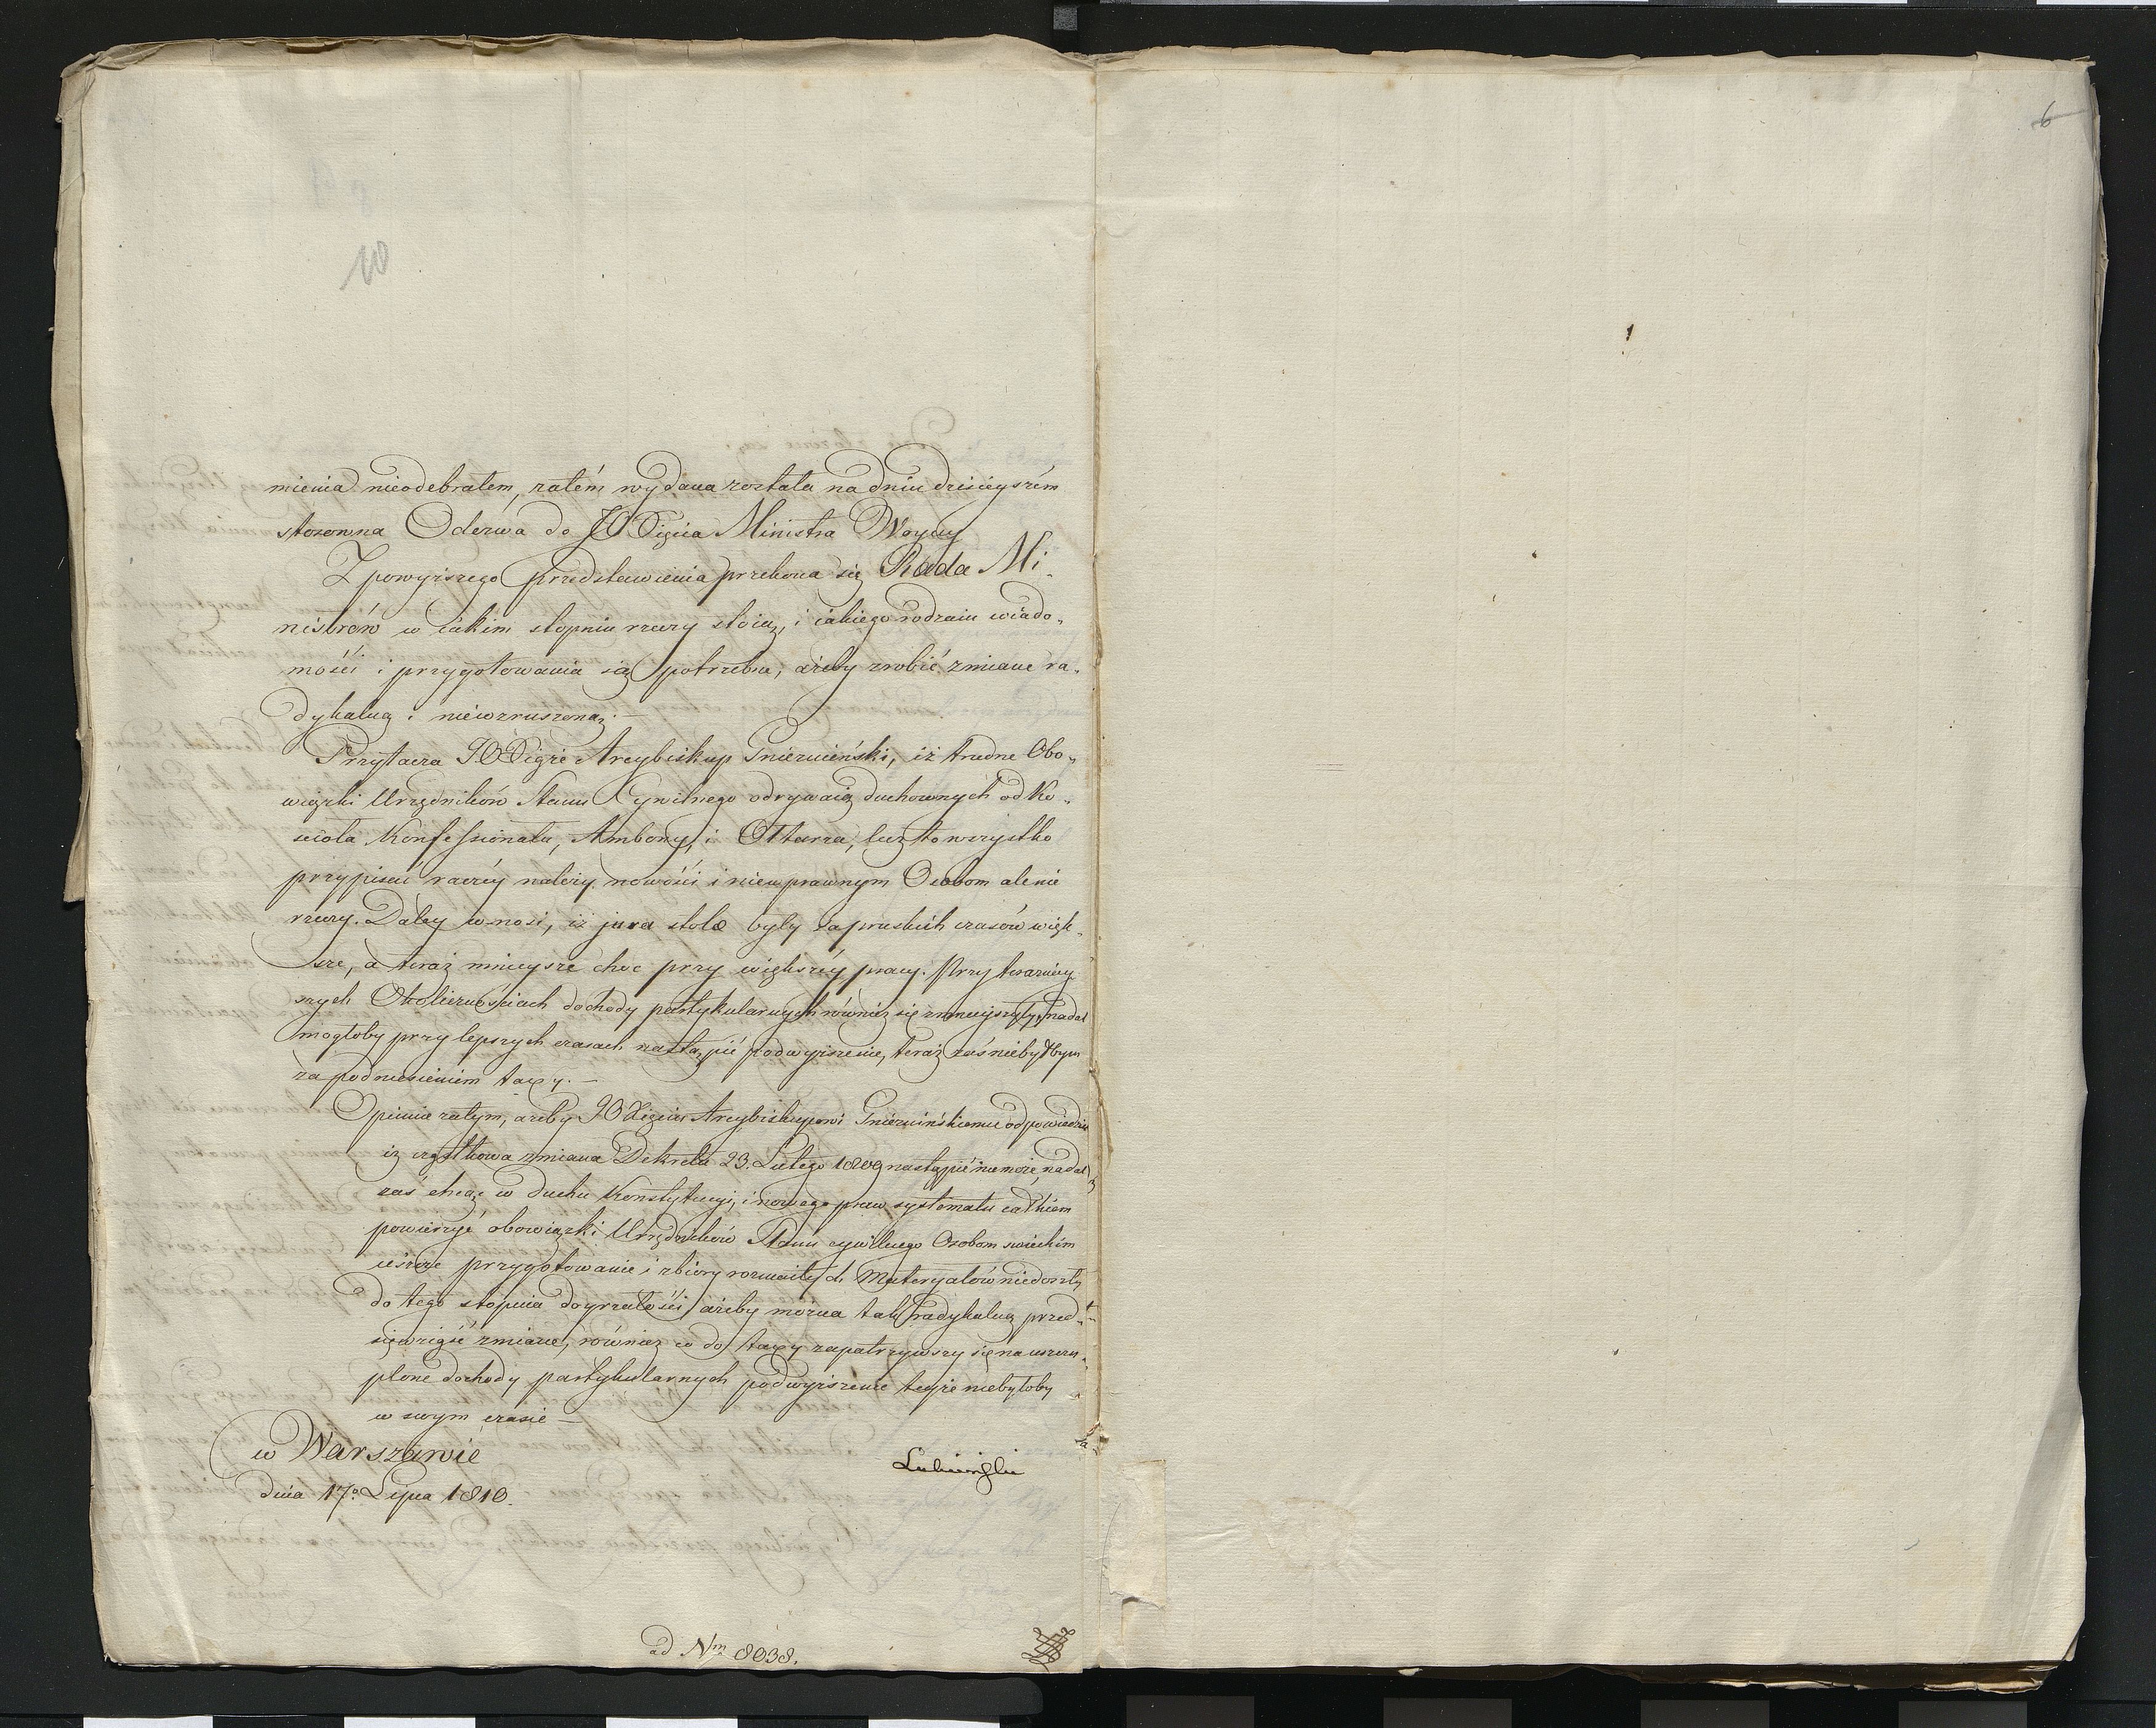 10
6
mienia nieodebrałem, zatém wydana została na dniu dzisieyszém
stosowna Odezwa do JO Xięcia Ministra Woyny
Z powyiszego przedstawienia przekona się Rada Mi„
nistrów w iakim stopniu rzeczy stoią, i iakiego rodzaiu wiado„
mości i przygotowania są potrzebne, ażeby zrobić zmianę ra„
dykalną i niewzruszoną.—
Przytacza JO Xiąże Arcybiskup Gnieznieński, iż trudne Obo„
wiązki Urzędników Stanu Cywilnego odrywaią duchownych od Ko„
scioła Konfessionału, Ambony, i Ołtarza, lecz to wszystko
przypisać raczéy należy nowości i niewprawnym Osobom ale nie
rzeczy. Daley wnosi, iż jura stolæ były za pruskich czasów więk„
sze, a teraz mnieysze choc przy większéy pracy. Przy terazniey
szych Okolicznościach dochody partykularnych równiez się zmnieyszyły, nadal
mogłoby przy lepszych czasach nastąpić podwyiszenie, teraz zaś niebyłbym
za podniesieniem taxy.—
Opinia zatym, ażeby JO Xięciu Arcybiskupowi Gnieznińskiemu odpowiedzieć
iż cząstkowa zmiana Dekretu 23. Lutego 1809 nastąpić niemoże, nadal
zaś chcąc w duchu Konstytucyi, i nowego praw systematu całkiem
powierzyć obowiązki Urzędników Stanu cywilnego Osobom swieckim
ieszcze przygotowanie i zbiory rozmaitych Materyałów niedoszły
do tego stopnia doyrzałości ażeby można tak radykalną przed„
sięwziąść zmianę, równiez co do taxy zapatrzywszy się na uszczu„
plone dochody partykularnych podwyiszenie teyże niebyłoby
w swym czasie —
w Warszawie
dnia 17º Lipca 1810.
Łubieński
ad Nm 8038.